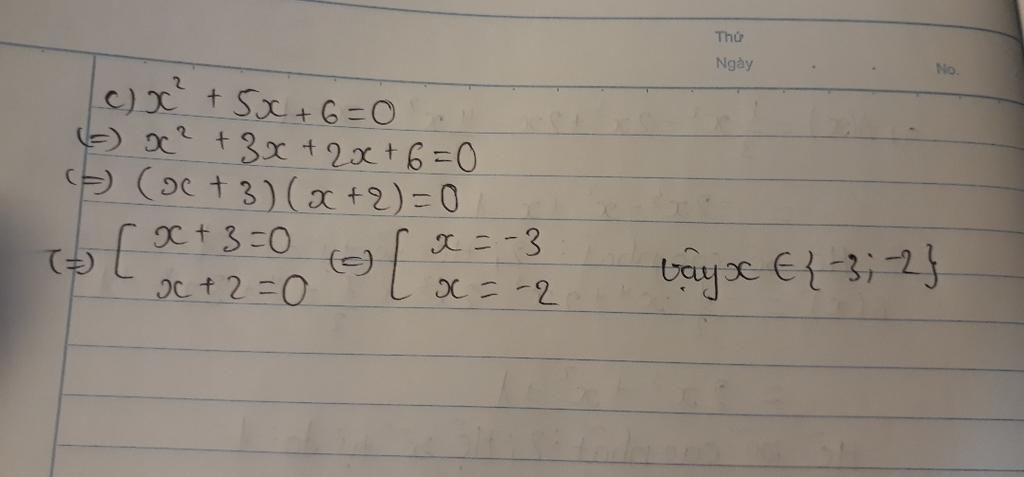 Thứ
Ngày
No.
c) x² + 5x + 6 = 0
(=) x² + 3x + 2x + 6 = 0
(=) (x + 3)(x + 2) = 0
(=) [ x + 3 = 0 (=) [ x = -3
x + 2 = 0 x = -2
vậy x ∈ {-3; -2}